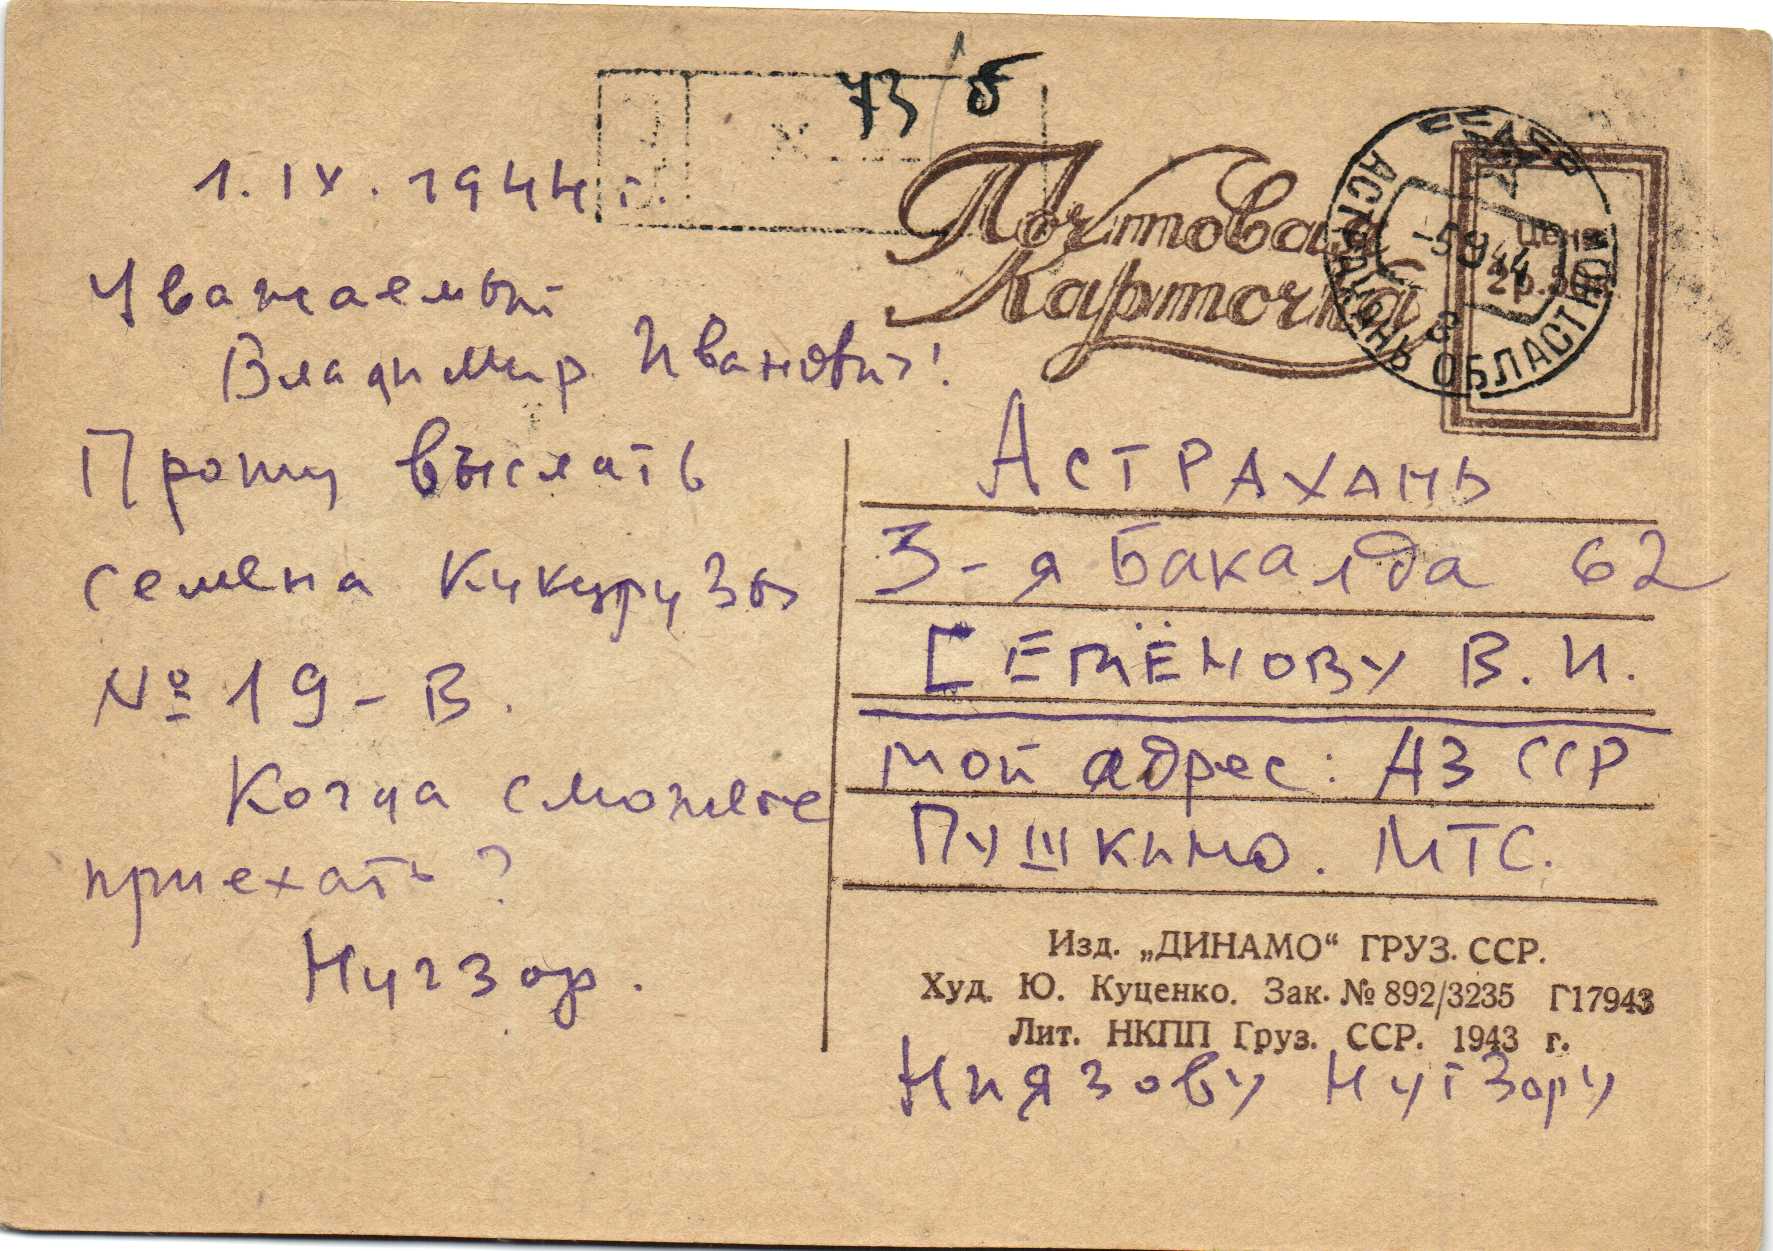 73 б
1. IX. 1944 г.
Уважаемый
Владимир Иванович!
Прошу выслать
семена кукурузы
№ 19 - В.
Когда сможете
приехать?
Нугзор.
Почтовая
Карточка
Цена
2р.
АСТРАХАНЬ ОБЛАСТН
-5 9 44
Астрахань
3-я Бакалда 62
Семёнову В. И.
мой адрес: АЗ ССР
Пушкино. МТС.
Изд. „ДИНАМО“ ГРУЗ. ССР.
Худ. Ю. Куценко. Зак. № 892/3235 Г17943
Лит. НКПП Груз. ССР. 1943 г.
Ниязову Нугзору